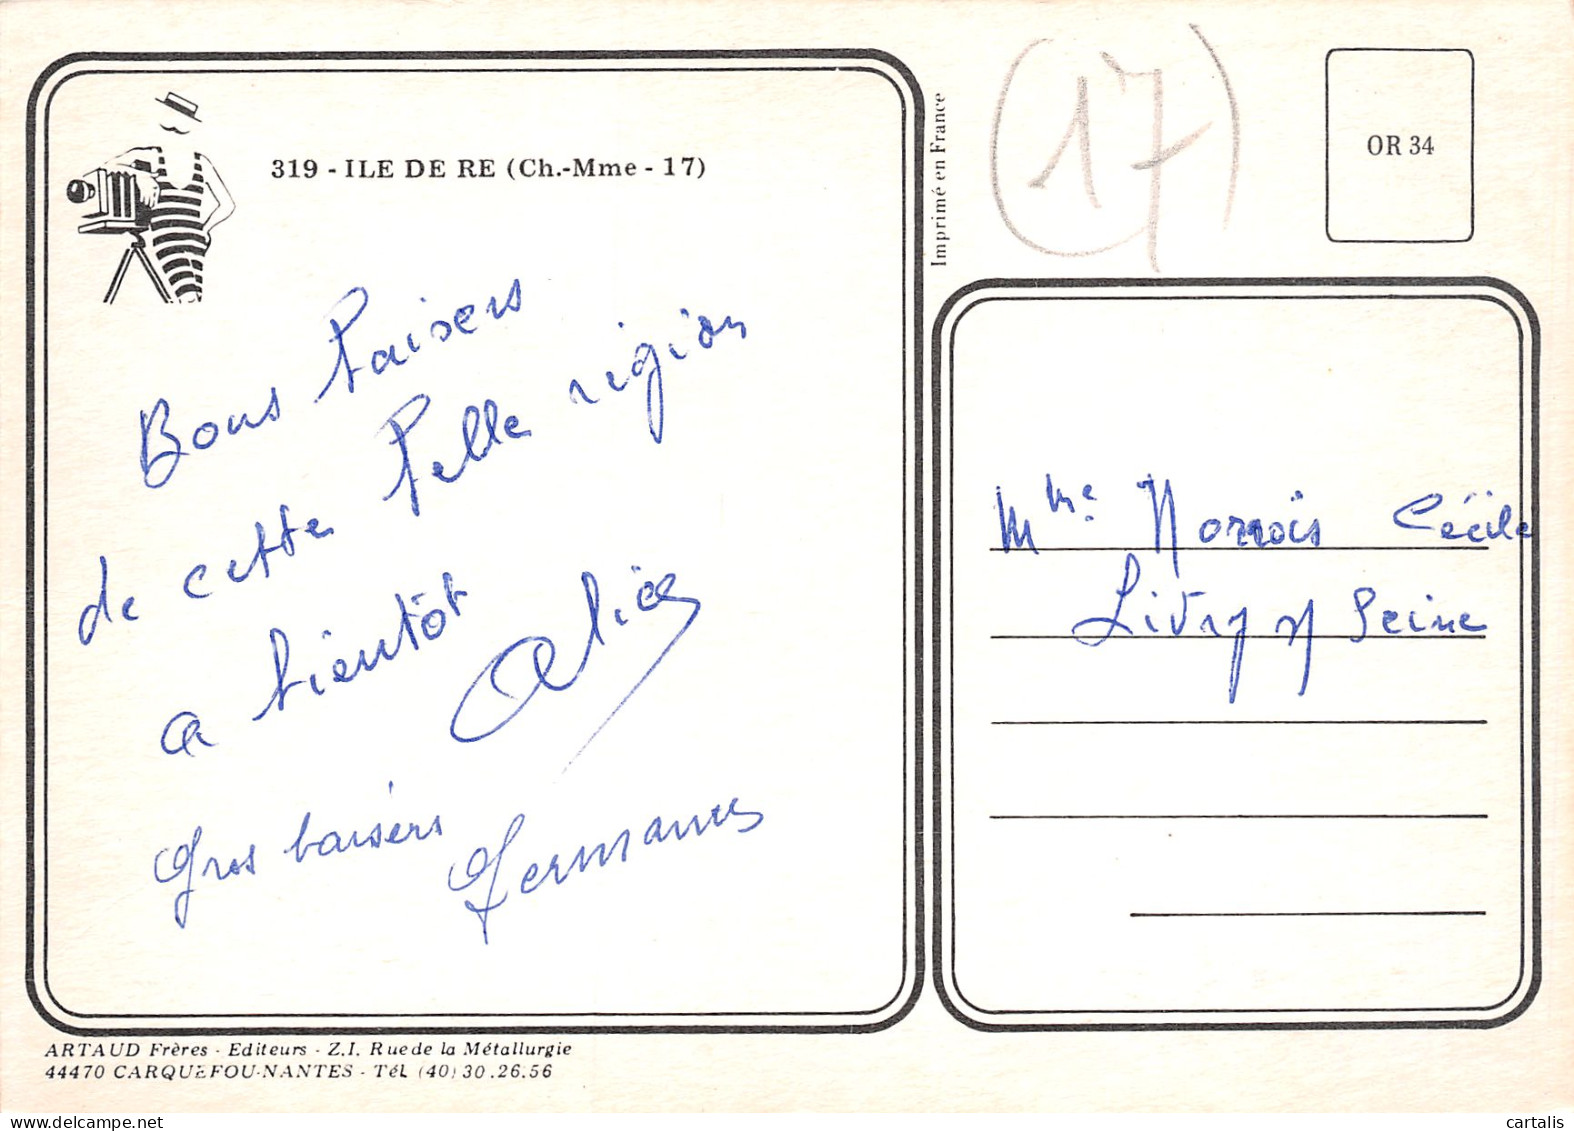 319 - ILE DE RE (Ch.-Mme - 17)
Bons baisers
de cette belle région
a bientôt
Alice
Gros baisers
Imprimé en France
17
OR 34
Mme Norrois Cécile
Livry s/ Seine
ARTAUD Frères - Editeurs - Z.I. Rue de la Métallurgie
44470 CARQUEFOU-NANTES - Tél. (40) 30.26.56
www.delcampe.net
cartalis